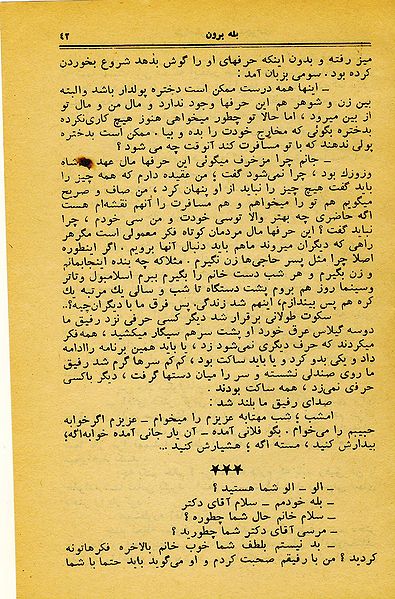 بله برون ۴۲
میز رفته و بدون اینکه حرفهای او را گوش بدهد شروع بخوردن
کرده بود . سومی بزبان آمد :
ـ اینها همه درست ممکن است دختره پولدار باشد والبته
بین زن و شوهر هم این حرفها وجود ندارد و مال من و مال تو
از بین میرود ، اما حالا تو چطور میخواهی هنوز هیچ کاری‌نکرده
بدختره بگوئی که مخارج خودت را بده و بیا . ممکن است بدختره
پولی ندهند که با تو مسافرت کند آنوقت چه می شود ؟
ـ جانم چرا مزخرف میگوئی این حرفها مال عهد شاه
وزوزك بود ، چرا نمی‌شود گفت ؛ من عقیده دارم که همه چیز را
باید گفت هیچ چیز را نباید از او پنهان کرد ، من صاف و صریح
میگویم هم تو را میخواهم و هم مسافرت را آنهم نقشه‌ام هست
اگه حاضری چه بهتر والا توسی خودت و من سی خودم ، چرا
نباید گفت ؟ این حرفها مال مردمان کوتاه فکر معمولی است مگرهر
راهی که دیگران میروند ماهم باید دنبال آنها برویم . اگر اینطوره
اصلا چرا مثل پسر حاجی‌ها زن نگیرم . مثلاکه چه بنده اینجابمانم
و زن بگیرم و هر شب دست خانم را بگیرم ببرم اسلامبول وتاتر
وسینما روز هم بروم پشت دستگاه تا شب و سالی یك مرتبه یك
کره هم پس بیندازم، اینهم شد زندگی، پس فرق ما با دیگران‌چیه؟..
سکوت طولانی برقرار شد دیگر کسی حرفی نزد رفیق ما
دوسه گیلاس عرق خورد او پشت سرهم سیگار میکشید ، همه‌فکر
میکردند که حرف دیگری نمی‌شود زد ، یا باید همین برنامه راادامه
داد و یکی بدو کرد و یا باید ساکت بود ، کم‌کم سرها گرم شد رفیق
ما روی صندلی نشسته و سر را میان دستها گرفت ، دیگر باکسی
حرفی نمی‌زد ، همه ساکت بودند .
صدای رفیق ما بلند شد :
امشب ؛ شب مهتابه عزیزم را میخوام ـ عزیزم اگرخوابه
حبیبم را می‌خوام . بگو فلانی آمده ـ آن یار جانی آمده خوابه‌اگه؛
بیدارش کنید ، مسته اگه ؛ هشیارش کنید ...
★★★
ـ الو ـ الو شما هستید ؟
ـ بله خودمم ـ سلام آقای دکتر
ـ سلام خانم حال شما چطوره ؟
ـ مرسی آقای دکتر شما چطورید ؟
ـ بد نیستم بلطف شما خوب خانم بالاخره فکرهاتونه
کردید ؟ من با رفیقم صحبت کردم و او می‌گوید باید حتما با شما